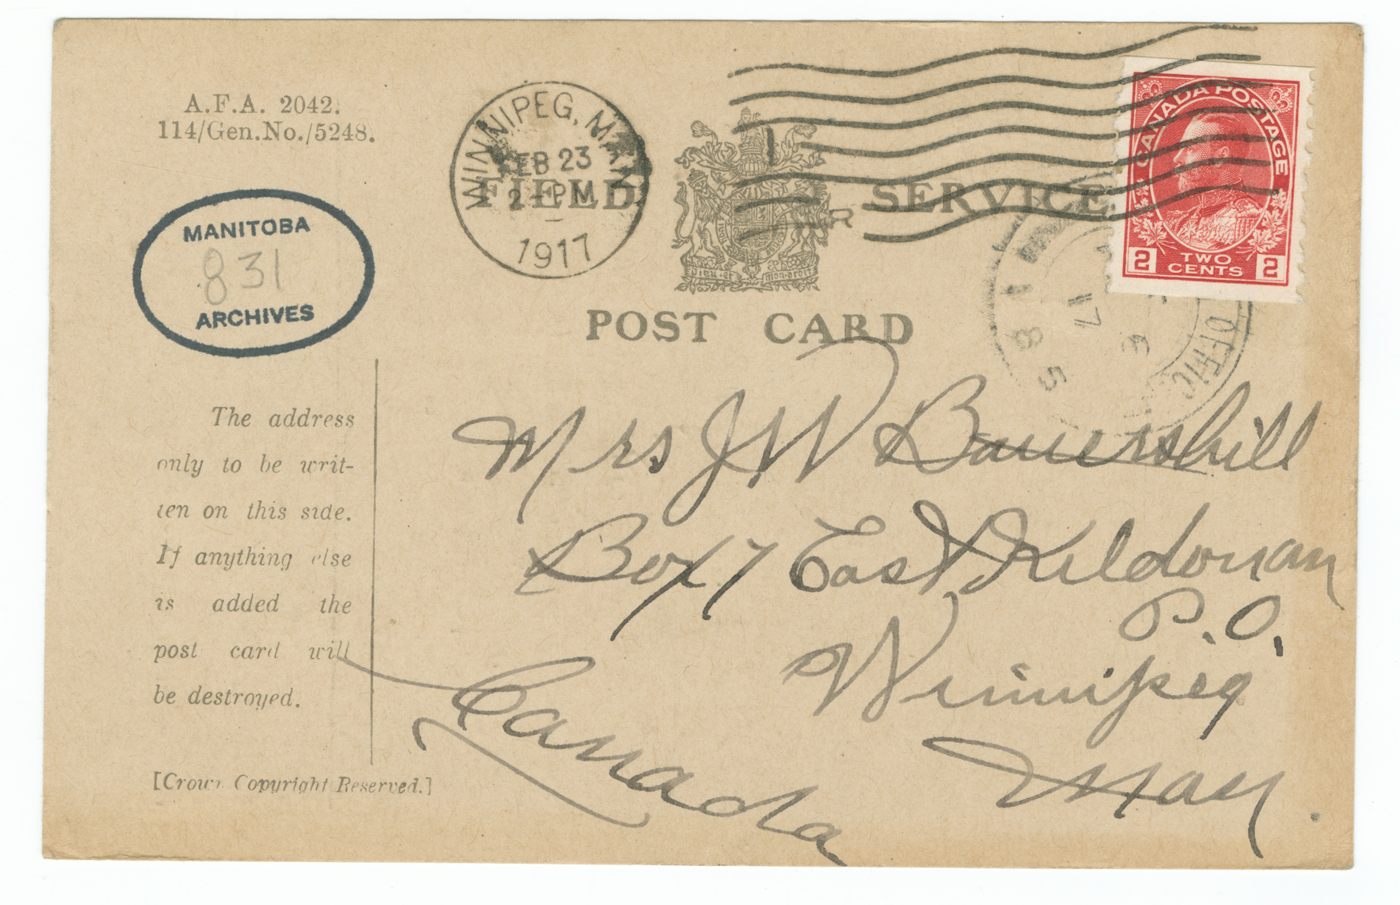 A.F.A. 2042.
114/Gen.No./5248.
MANITOBA
831
ARCHIVES
WINNIPEG, MAN.
FEB 23
2 PM
1917
FIELD SERVICE
POST CARD
CANADA POSTAGE
2 TWO CENTS 2
OFFIC
17
6
185
The address
only to be writ-
ten on this side.
If anything else
is added the
post card will
be destroyed.
[Crown Copyright Reserved.]
Mrs J W Bauershill
Box 7 East Kildonan
P.O.
Winnipeg
Man.
Canada